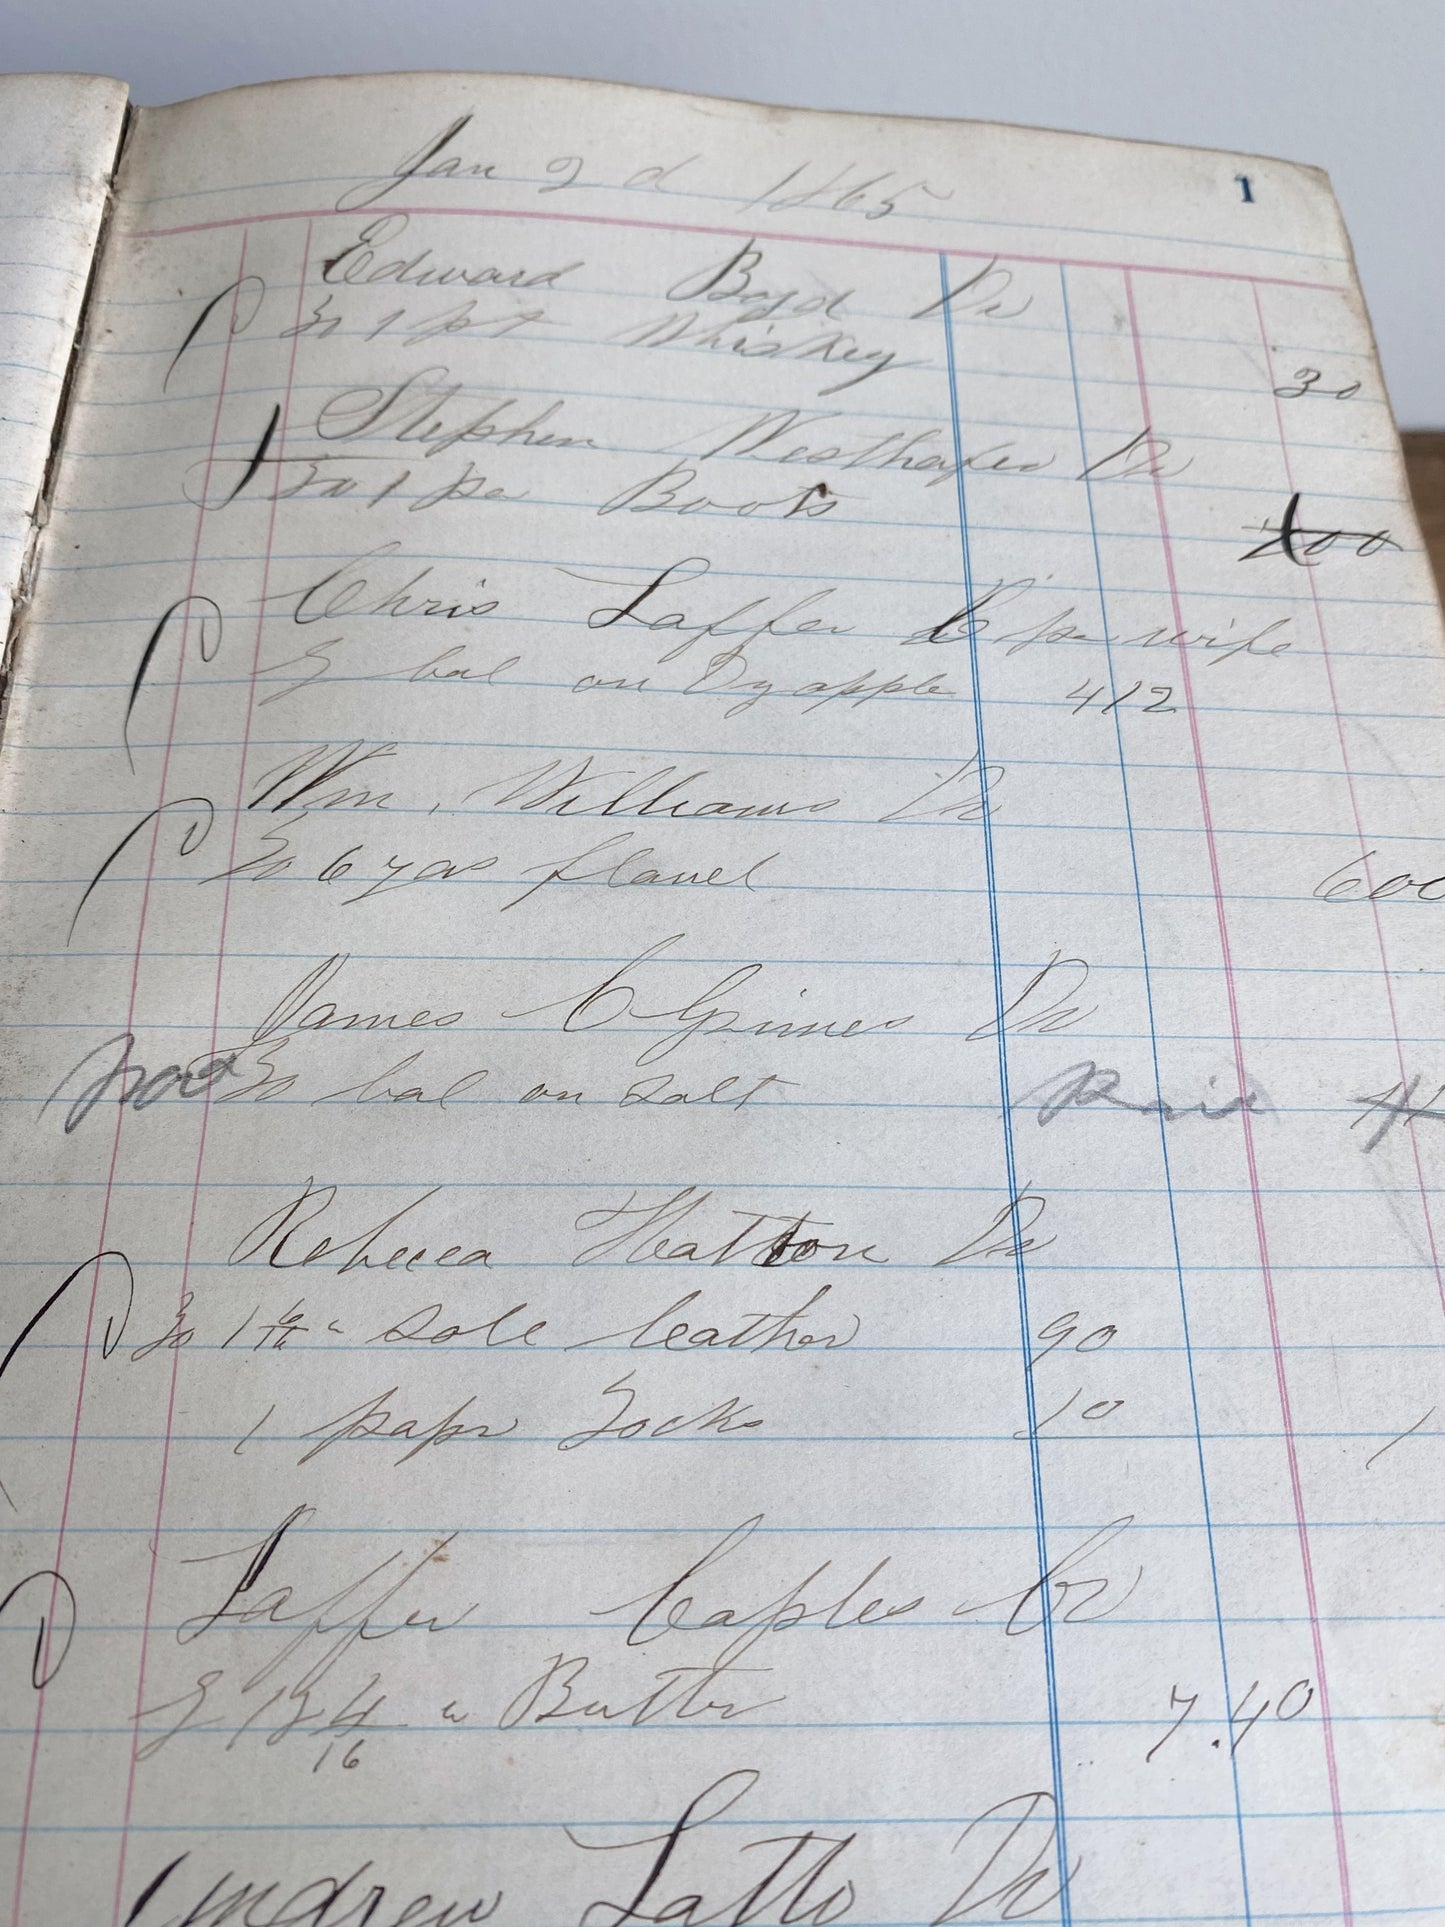 Jan 2d 1865
1
Edward Boyd Dr
To 1 pt Whiskey 30
Stephen Westhafer Dr
To 1 pr Boots
Chris Laffer Cr pr wife
By bal on Dryapple 412
Wm. Williams Dr
To 6 yds flanel 600
James C Grimes Dr
To bal on Salt Paid
Rebecca Hatton Dr
To 1 lb Sole leather 90
1 papr Socks 10 1
Laffer Caples Cr
By 12 4/16 " Butter 7.40
Andrew Latto Dr